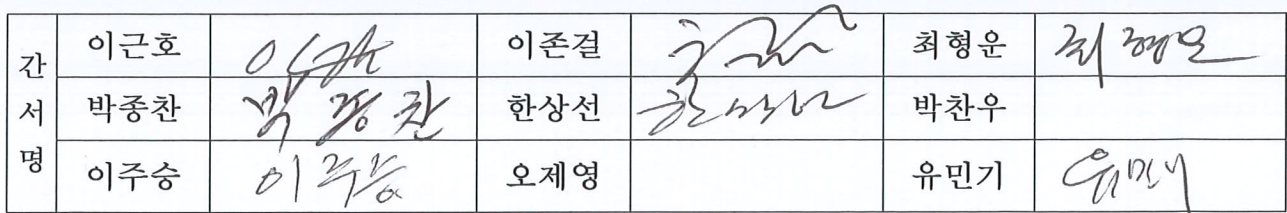 간서명
이근호 이존걸 최형운 최형운
박종찬 박종찬 한상선 한상선 박찬우
이주승 이주승 오제영 유민기 유민기